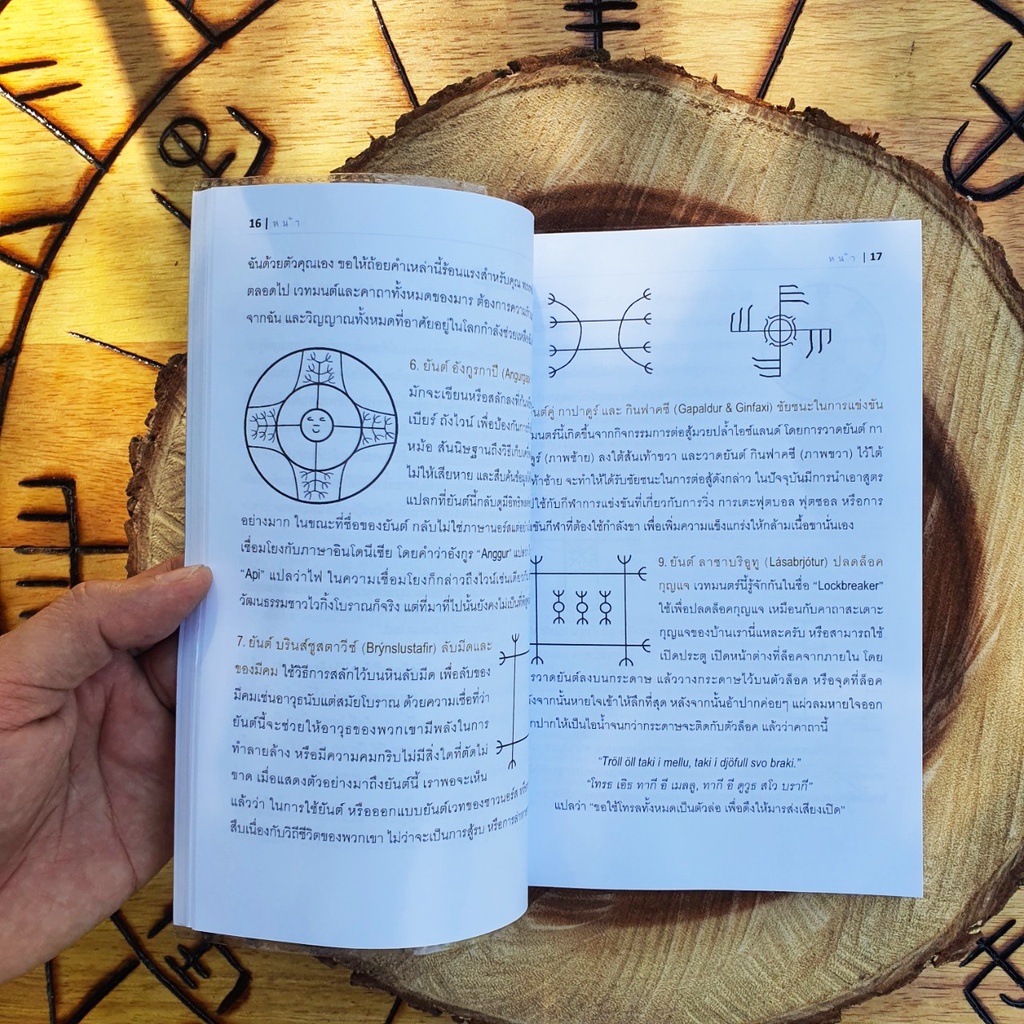 16 | หน้า
ฉันด้วยตัวคุณเอง ขอให้ถ้อยคำเหล่านี้ร้อนแรงสำหรับคุณ
ตลอดไป เวทมนต์และคาถาทั้งหมดของมาร ต้องการความ
จากฉัน และวิญญาณทั้งหมดที่อาศัยอยู่ในโลกกำลังช่วยเหลือ
6. ยันต์ อังกูรกาปี
มักจะเขียนหรือสลักลงที่
เบียร์ ถังไวน์ เพื่อป้องกัน
หม้อ สันนิษฐานถึงวิธีเก็บ
ไม่ให้เสียหาย และสืบค้น
แปลกที่ยันต์นี้กลับดูมีอิทธิพล
อย่างมาก ในขณะที่ชื่อของยันต์ กลับไม่ใช่ภาษานอร์ส
เชื่อมโยงกับภาษาอินโดนีเซีย โดยคำว่าอังกูร "Anggur"
"Api" แปลว่าไฟ ในความเชื่อมโยงก็กล่าวถึงไวน์เช่นเดียว
วัฒนธรรมชาวไวกิ้งโบราณก็จริง แต่ที่มาที่ไปนั้นยังคงไม่เป็นที่
7. ยันต์ บรินส์ซูสตาวีซ์ (Brýnslustafir) ลับมีดและ
ของมีคม ใช้วิธีการสลักไว้บนหินลับมีด เพื่อลับของ
มีคมเช่นอาวุธนับแต่สมัยโบราณ ด้วยความเชื่อที่ว่า
ยันต์นี้จะช่วยให้อาวุธของพวกเขามีพลังในการ
ทำลายล้าง หรือมีความคมกริบไม่มีสิ่งใดที่ตัดไม่
ขาด เมื่อแสดงตัวอย่างมาถึงยันต์นี้ เราพอจะเห็น
แล้วว่า ในการใช้ยันต์ หรือออกแบบยันต์เวทของชาวนอร์ส
สืบเนื่องกับวิถีชีวิตของพวกเขา ไม่ว่าจะเป็นการสู้รบ
หน้า | 17
กาปาดูร์ และ กินฟาคซี (Gapaldur & Ginfaxi) ชัยชนะในการแข่งขัน
มนตร์นี้เกิดขึ้นจากกิจกรรมการต่อสู้มวยปล้ำไอซ์แลนด์ โดยการวาดยันต์ กา
(ภาพซ้าย) ลงใต้ส้นเท้าขวา และวาดยันต์ กินฟาคซี (ภาพขวา) ไว้ใต้
ซ้าย จะทำให้ได้รับชัยชนะในการต่อสู้ดังกล่าว ในปัจจุบันมีการนำเอาสูตร
ใช้กับกีฬาการแข่งขันที่เกี่ยวกับการวิ่ง การเตะฟุตบอล ฟุตซอล หรือการ
กีฬาที่ต้องใช้กำลังขา เพื่อเพิ่มความแข็งแกร่งให้กล้ามเนื้อขานั่นเอง
9. ยันต์ ลาซาบริอูทู (Lásabrjótur) ปลดล็อค
กุญแจ เวทมนตร์นี้รู้จักกันในชื่อ "Lockbreaker"
ใช้เพื่อปลดล็อคกุญแจ เหมือนกับคาถาสะเดาะ
กุญแจของบ้านเรานี่แหละครับ หรือสามารถใช้
เปิดประตู เปิดหน้าต่างที่ล็อคจากภายใน โดย
วาดยันต์ลงบนกระดาษ แล้ววางกระดาษไว้บนตัวล็อค หรือจุดที่ล็อค
จากนั้นหายใจเข้าให้ลึกที่สุด หลังจากนั้นอ้าปากค่อยๆ แผ่วลมหายใจออก
ปากให้เป็นไอน้ำจนกว่ากระดาษจะติดกับตัวล็อค แล้วว่าคาถานี้
"Tröll öll taki i mellu, taki i djöfull svo braki."
"โทรธ เอิธ ทากี อี เมลลู, ทากี อี ดูวูธ สโว บรากี"
แปลว่า "ขอใช้โทรลทั้งหมดเป็นตัวล่อ เพื่อดึงให้มารส่งเสียงเปิด"